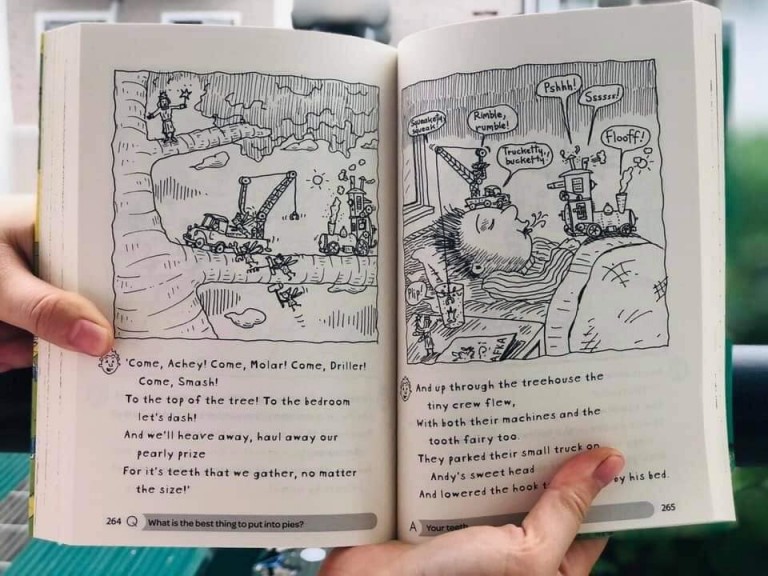 'Come, Achey! Come, Molar! Come, Driller!
Come, Smash!
To the top of the tree! To the bedroom
let's dash!
And we'll heave away, haul away our
pearly prize
For it's teeth that we gather, no matter
the size!'
264 Q What is the best thing to put into pies?
Squeakety squeak
Rimble,
rumble!
Trucketty,
bucketty!
Pshhh!
Ssssss!
Flooff!
Plip!
And up through the treehouse the
tiny crew flew,
With both their machines and the
tooth fairy too.
They parked their small truck on
Andy's sweet head
And lowered the hook his bed.
A Your teeth
265